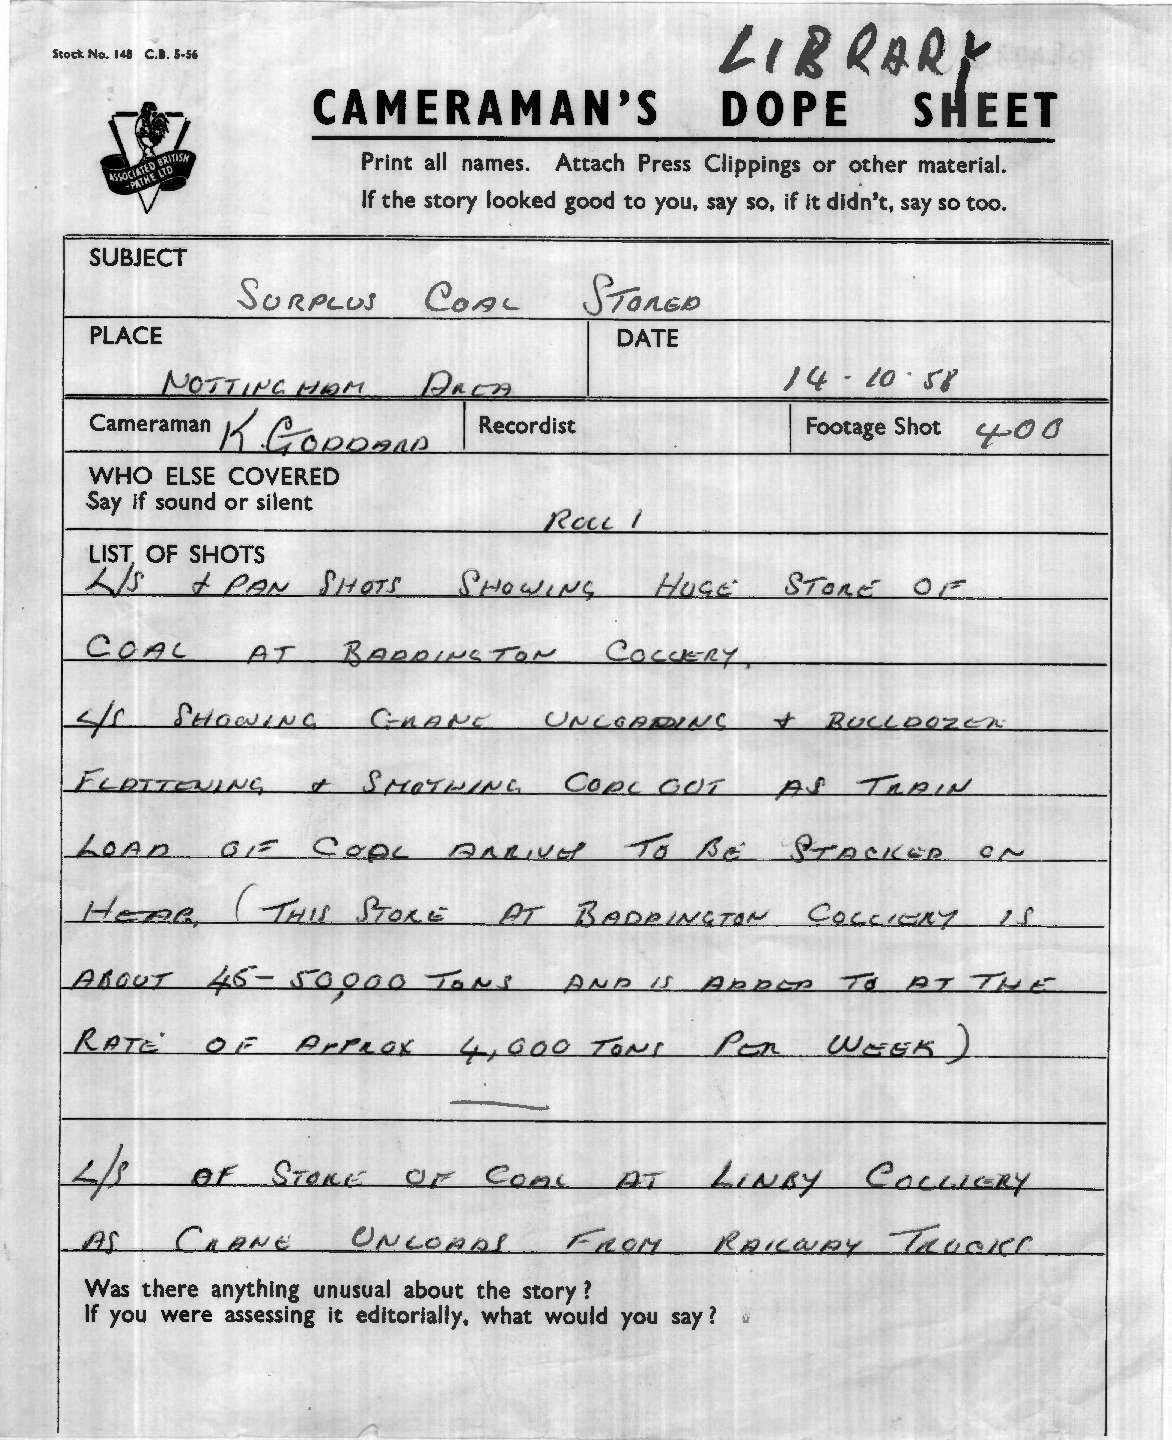 Stock No. 148 C.B. 5-56
LIBRARY
CAMERAMAN'S DOPE SHEET
ASSOCIATED BRITISH
-PATHE LTD
Print all names. Attach Press Clippings or other material.
If the story looked good to you, say so, if it didn't, say so too.
SUBJECT
SURPLUS COAL STORED
PLACE
DATE
NOTTINGHAM AREA
14-10-58
Cameraman K. GODDARD Recordist Footage Shot 400
WHO ELSE COVERED
Say if sound or silent
ROLL 1
LIST OF SHOTS
L/S + PAN SHOTS SHOWING HUGE STORE OF
COAL AT BADDINGTON COLLIERY.
L/S SHOWING CRANE UNLOADING + BULLDOZER
FLATTENING + SMOTHING COAL OUT AS TRAIN
LOAD OF COAL ARRIVES TO BE STACKED ON
HEAP, (THIS STORE AT BADDINGTON COLLIERY IS
ABOUT 45-50,000 TONS AND IS ADDED TO AT THE
RATE OF APPROX 4,000 TONS PER WEEK)
L/S OF STORE OF COAL AT LINBY COLLIERY
AS CRANE UNLOADS FROM RAILWAY TRUCKS
Was there anything unusual about the story?
If you were assessing it editorially, what would you say?